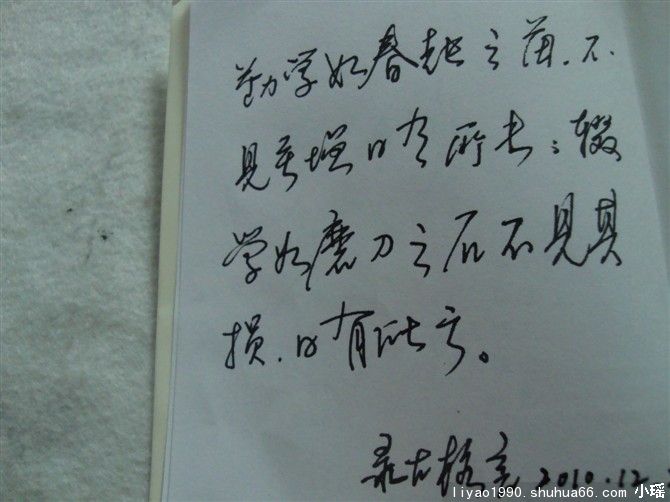 勤学如春起之苗.不
见其增日有所长;辍
学如磨刀之石不见其
损.日有所亏。
录古格言 2010.12
liyao1990.shuhua66.com 小瑶